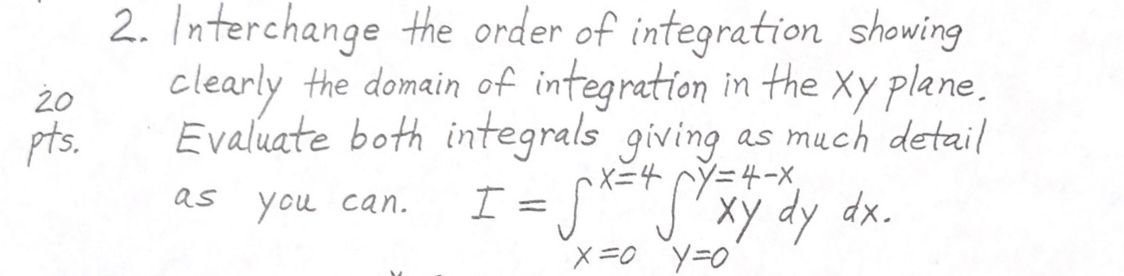 2. Interchange the order of integration showing
clearly the domain of integration in the xy plane.
20
pts. Evaluate both integrals giving as much detail
as you can. I = ∫_{x=0}^{x=4} ∫_{y=0}^{y=4-x} xy dy dx.